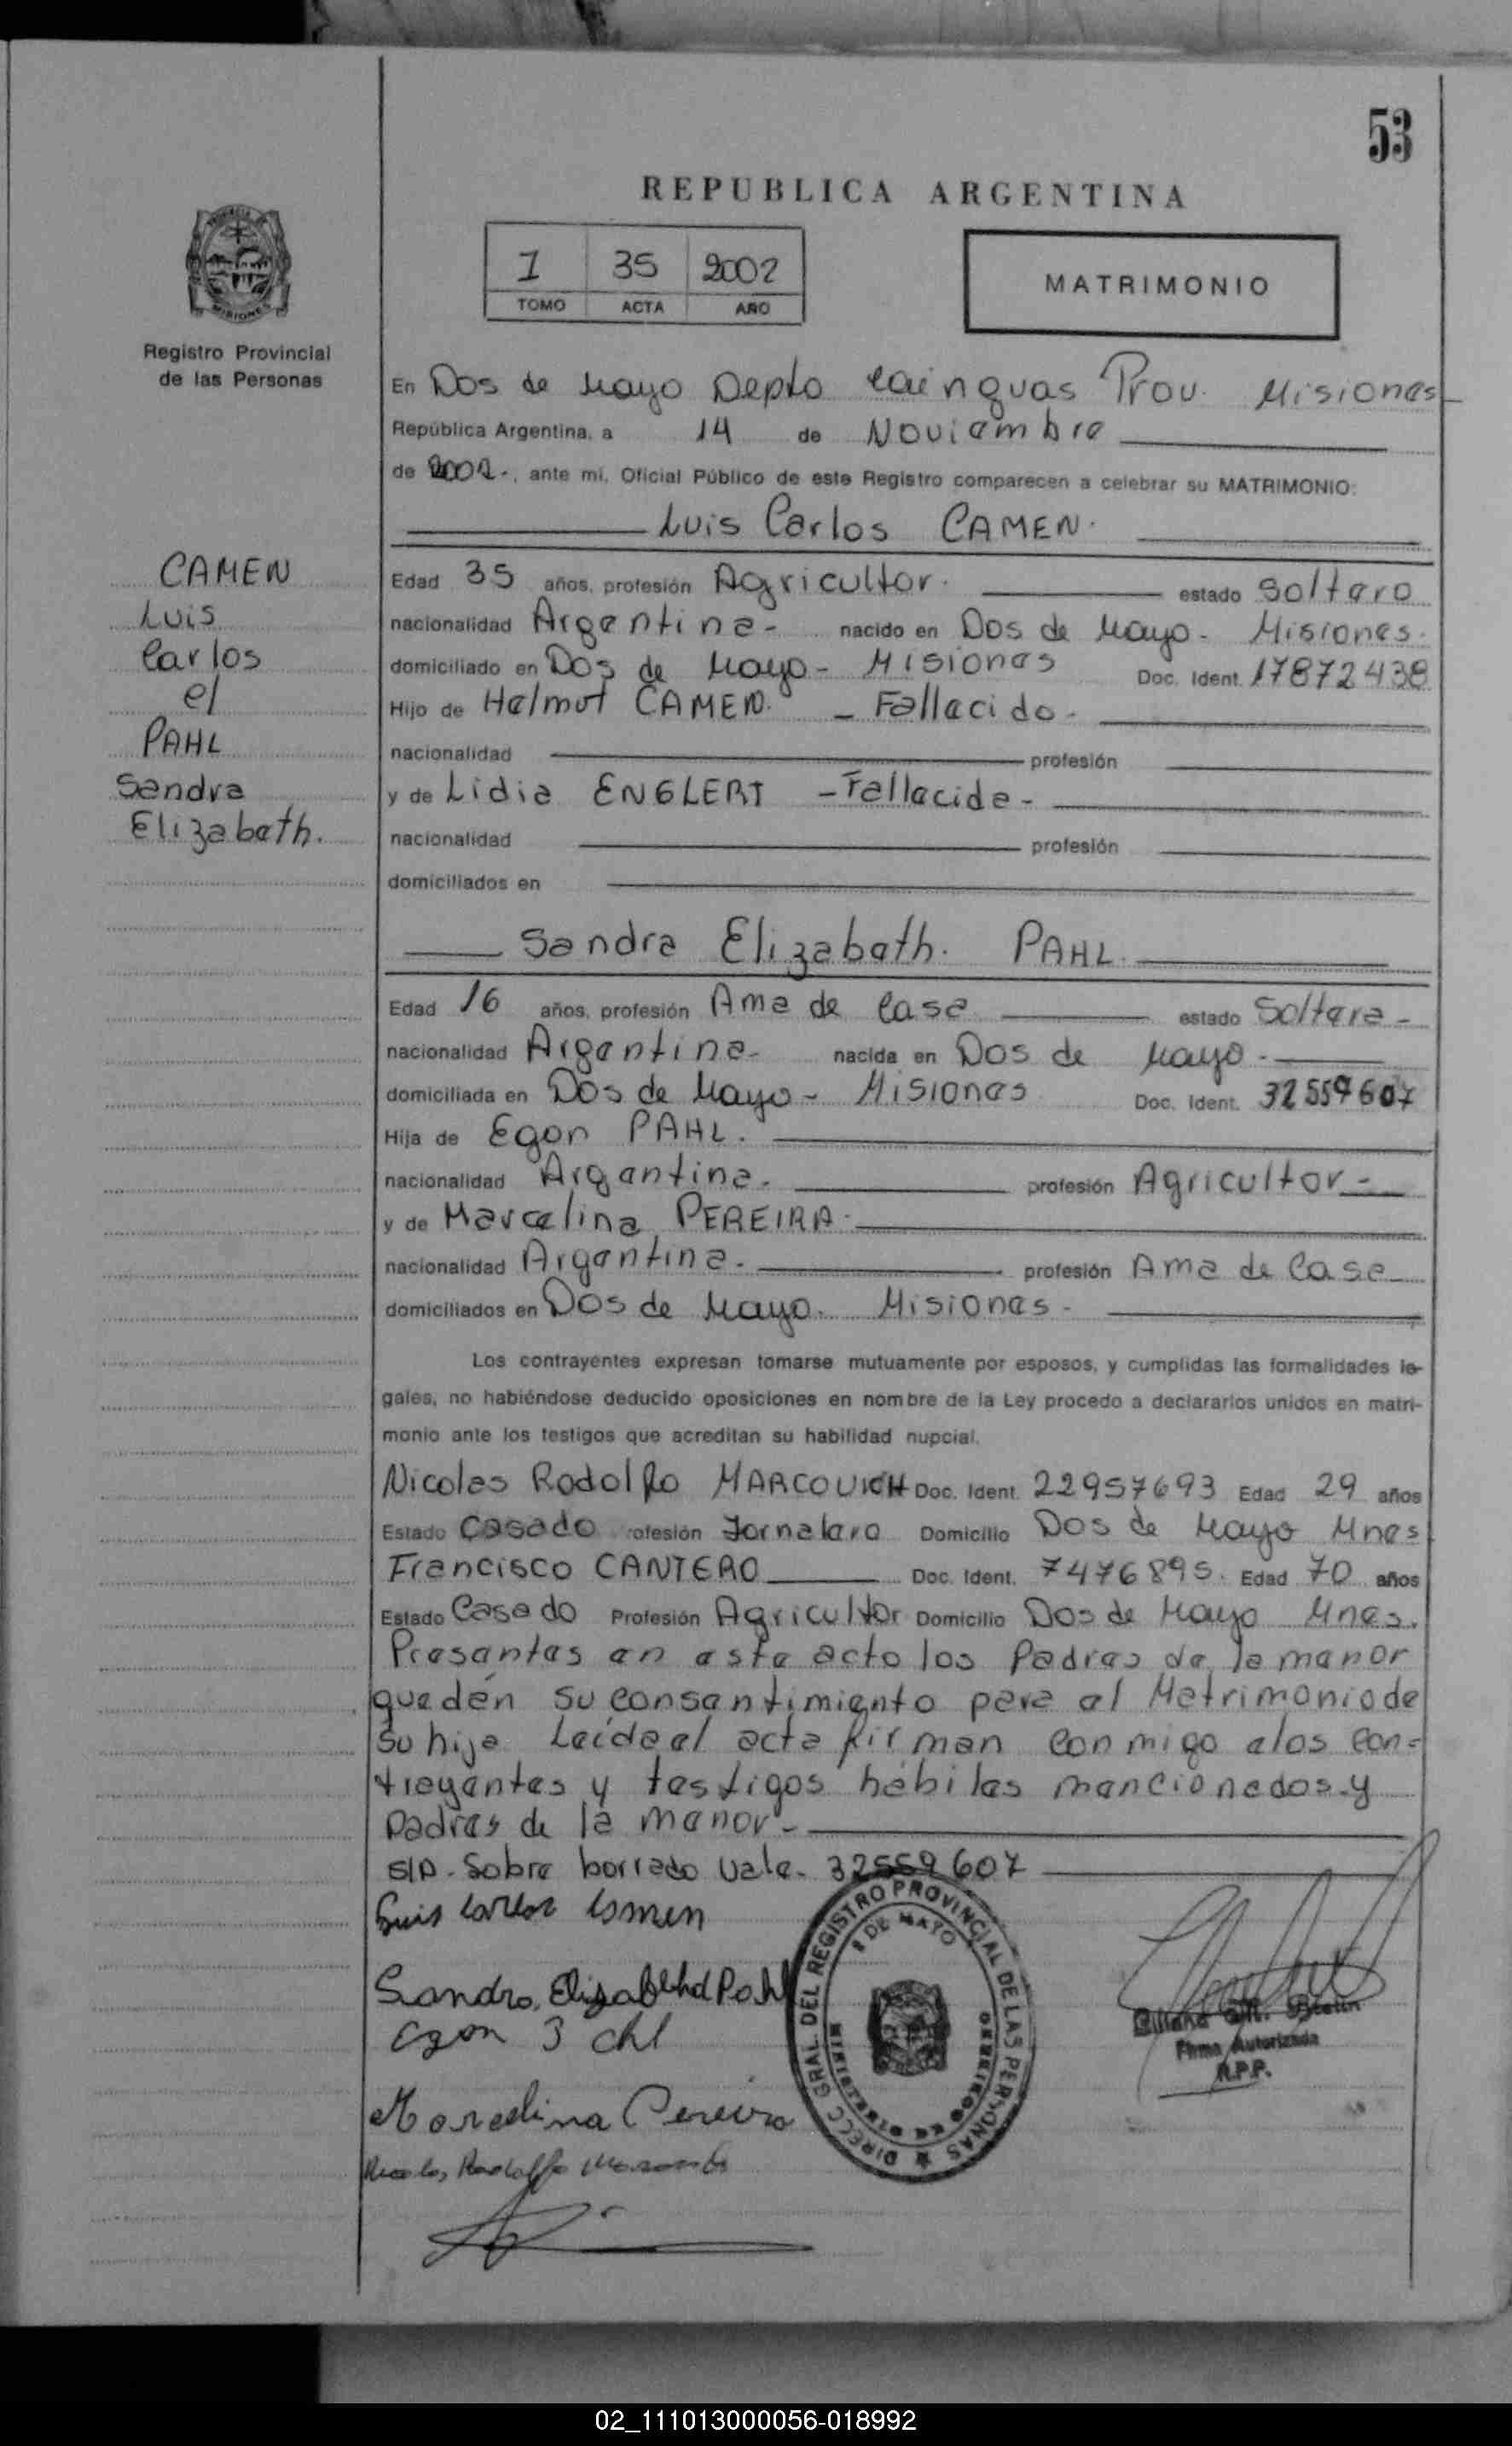 53
REPUBLICA ARGENTINA
1 35 2002
TOMO ACTA AÑO
MATRIMONIO
Registro Provincial
de las Personas
En Dos de Mayo Depto Cainguas Prov. Misiones
República Argentina, a 14 de Noviembre
de 2002-, ante mi, Oficial Público de este Registro comparecen a celebrar su MATRIMONIO:
Luis Carlos CAMEN.
CAMEN
Luis
Carlos
el
PAHL
Sandra
Elizabeth.
Edad 35 años, profesión Agricultor. estado Soltero
nacionalidad Argentina- nacido en Dos de Mayo- Misiones.
domiciliado en Dos de Mayo- Misiones Doc. Ident. 17872438
Hijo de Helmut CAMEN. - Fallecido-
nacionalidad profesión
y de Lidia ENGLERT - Fallecida-
nacionalidad profesión
domiciliados en
Sandra Elizabeth. PAHL.
Edad 16 años, profesión Ama de Casa estado Soltera-
nacionalidad Argentina- nacida en Dos de Mayo-
domiciliada en Dos de Mayo- Misiones Doc. Ident. 32559607
Hija de Egon PAHL.
nacionalidad Argentina. profesión Agricultor-
y de Marcelina PEREIRA.
nacionalidad Argentina. profesión Ama de Casa
domiciliados en Dos de Mayo. Misiones-
Los contrayentes expresan tomarse mutuamente por esposos, y cumplidas las formalidades le-
gales, no habiéndose deducido oposiciones en nombre de la Ley procedo a declararlos unidos en matri-
monio ante los testigos que acreditan su habilidad nupcial.
Nicolas Rodolfo MARCOVICH Doc. Ident. 22957693 Edad 29 años
Estado Casado rofesión Jornalero Domicilio Dos de Mayo Mnes
Francisco CANTERO Doc. Ident. 7476895. Edad 70 años
Estado Casado Profesión Agricultor Domicilio Dos de Mayo Mnes.
Presentes en este acto los Padres de la menor
que dén su consentimiento para el Matrimonio de
su hija Leída el acta firman conmigo a los con-
trayentes y testigos hábiles mencionados y
padres de la menor-
S/P. Sobre borrado vale- 32559607
Luis Carlos Camen
Sandra Elizabethd Pahl
Egon
Marcelina Pereira
DIRECC GRAL DEL REGISTRO PROVINCIAL DE LAS PERSONAS
2 DE MAYO
Firma Autorizada
R.P.P.
02_111013000056-018992